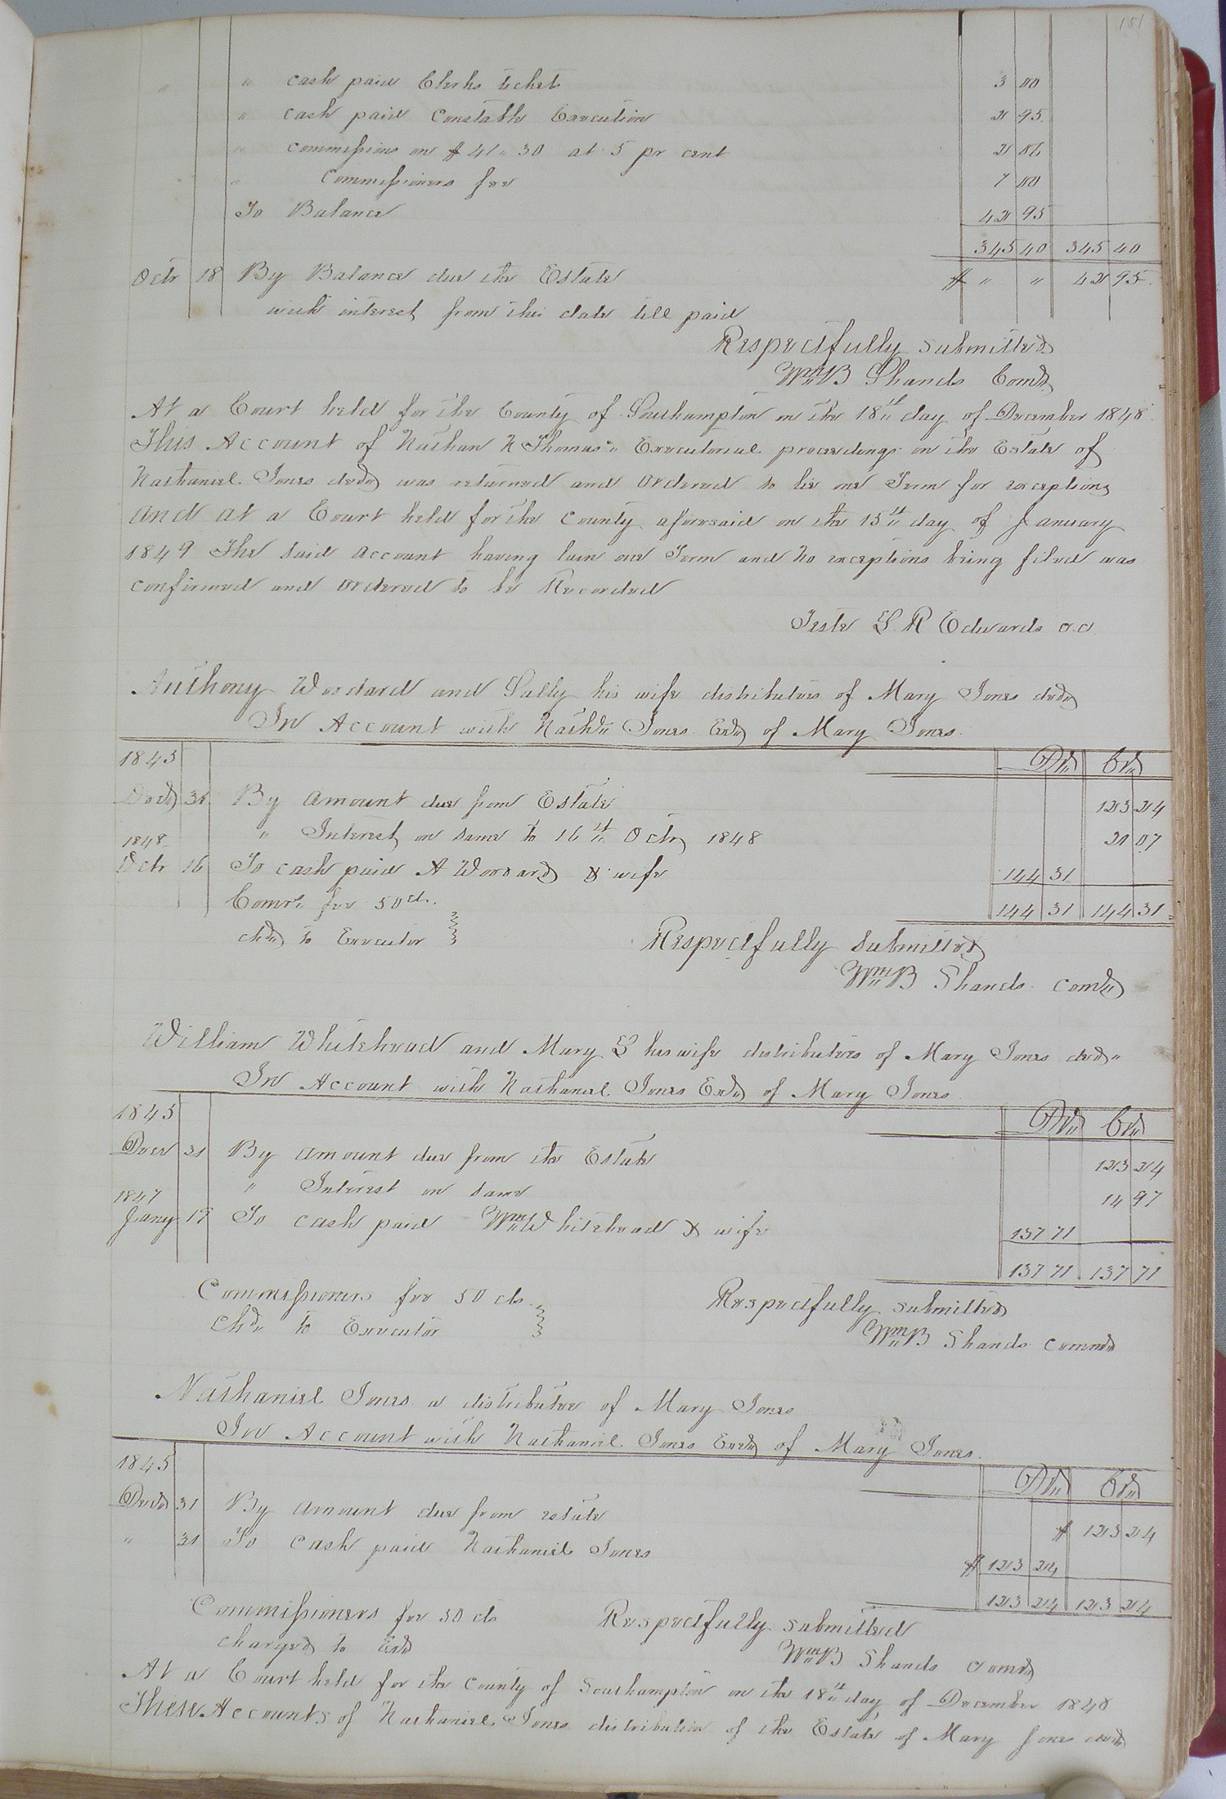 151
" cash paid Clerks ticket 3 00
" cash paid Constable Execution 2 95
" commissions on $41.30 at 5 pr cent 2 06
" Commissioners fee 7 00
To Balance 42 95
345 40 345 40
Octr 18 By Balance due the Estate $ " " 42 95
with interest from this date till paid
Respectfully submitted
Wm B Shands Comr
At a Court held for the County of Southampton on the 18th day of December 1848
This Account of Nathan N Thomas" Executorial proceedings on the Estate of
Nathaniel Jones decd was returned and Ordered to lie one Term for exceptions
And at a Court held for the County aforesaid on the 15th day of January
1849 The said account having lain one Term and no exceptions being filed was
confirmed and ordered to be Recorded
Teste L R Edwards c.c
Anthony Woodard and Sally his wife distributees of Mary Jones decd
In Account with Nathl Jones Exr of Mary Jones
1845 Dr Cr
Decr 31 By Amount due from Estate 123 24
" Interest on same to 16th Octr 1848 20 07
1848
Octr 16 To cash paid A Woodard & wife 144 31
Comrs fee 50 cts. 144 31 144 31
chd to Executor
Respectfully submitted
Wm B Shands comr
William Whitehead and Mary L his wife distributees of Mary Jones decd"
In Account with Nathaniel Jones Exr of Mary Jones
1845 Dr Cr
Decr 31 By amount due from the Estate 123 24
" Interest on same 14 97
1847
Jany 17 To cash paid Wm Whitehead & wife 137 71
137 71 137 71
Commissioners fee 50 cts Respectfully submitted
Chd to Executor Wm B Shands commr
Nathaniel Jones a distributee of Mary Jones
In Account with Nathaniel Jones Exr of Mary Jones
1845 Dr Cr
Decr 31 By amount due from estate $ 123 24
" 31 To Cash paid Nathaniel Jones $ 123 24
123 24 123 24
Commissioners fee 50 cts Respectfully submitted
charged to Exr Wm B Shands comr
At a Court held for the County of Southampton on the 18th day of December 1848
These Accounts of Nathaniel Jones distribution of the Estate of Mary Jones decd